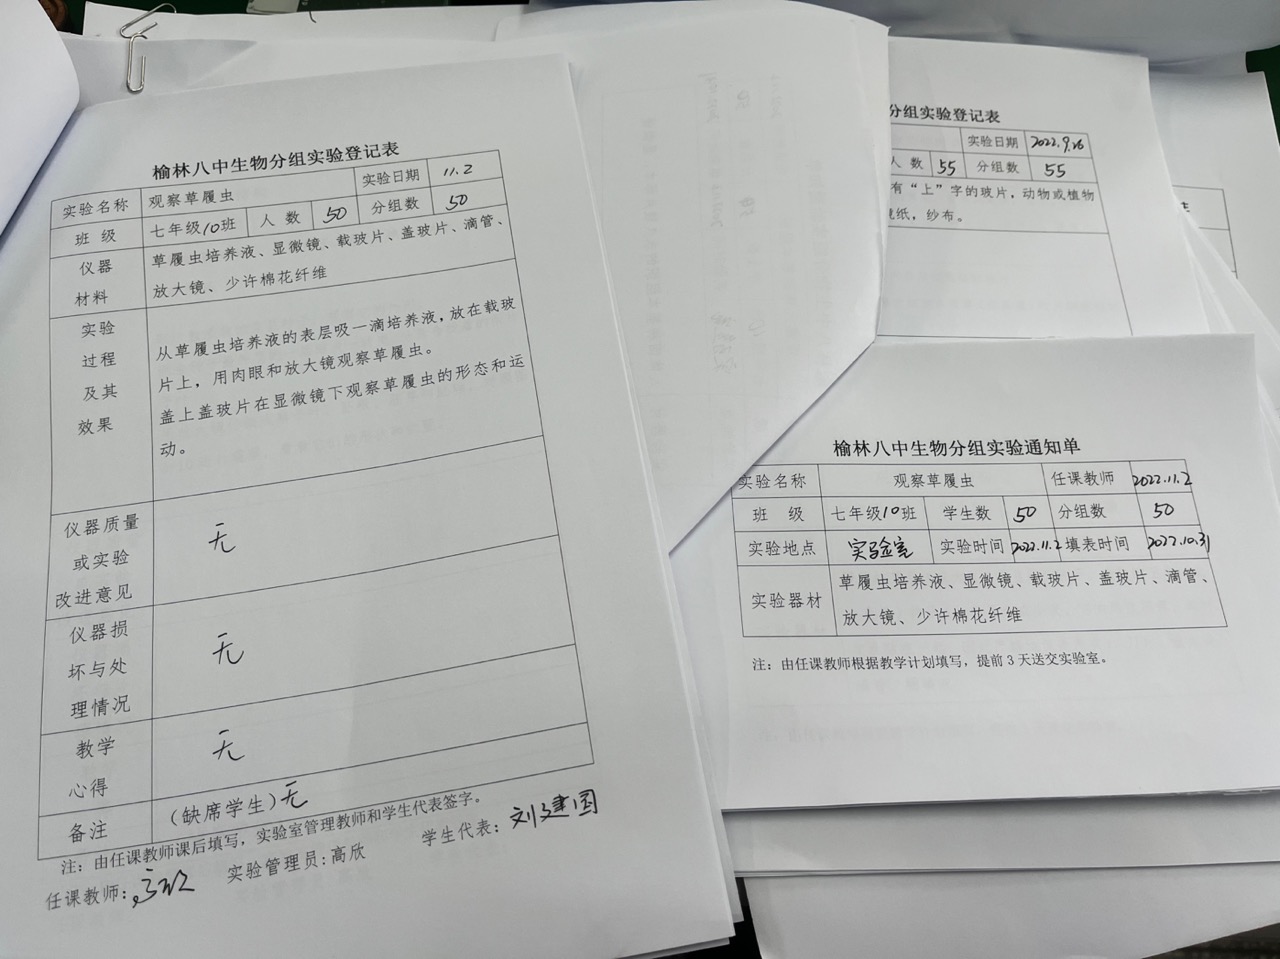 榆林八中生物分组实验登记表
实验名称 观察草履虫 实验日期 11.2
班 级 七年级10班 人 数 50 分组数 50
仪器材料 草履虫培养液、显微镜、载玻片、盖玻片、滴管、
放大镜、少许棉花纤维
实验过程及其效果
从草履虫培养液的表层吸一滴培养液，放在载玻
片上，用肉眼和放大镜观察草履虫。
盖上盖玻片在显微镜下观察草履虫的形态和运
动。
仪器质量或实验改进意见 无
仪器损坏与处理情况 无
教学心得 无
备注 （缺席学生）无
注：由任课教师课后填写，实验室管理教师和学生代表签字。
任课教师： 实验管理员：高欣 学生代表：刘建国
分组实验登记表
实验日期 2022.9.26
人 数 55 分组数 55
有“上”字的玻片，动物或植物
镜纸，纱布。
榆林八中生物分组实验通知单
实验名称 观察草履虫 任课教师 2022.11.2
班 级 七年级10班 学生数 50 分组数 50
实验地点 实验室 实验时间 2022.11.2 填表时间 2022.10.31
实验器材 草履虫培养液、显微镜、载玻片、盖玻片、滴管、
放大镜、少许棉花纤维
注：由任课教师根据教学计划填写，提前3天送交实验室。